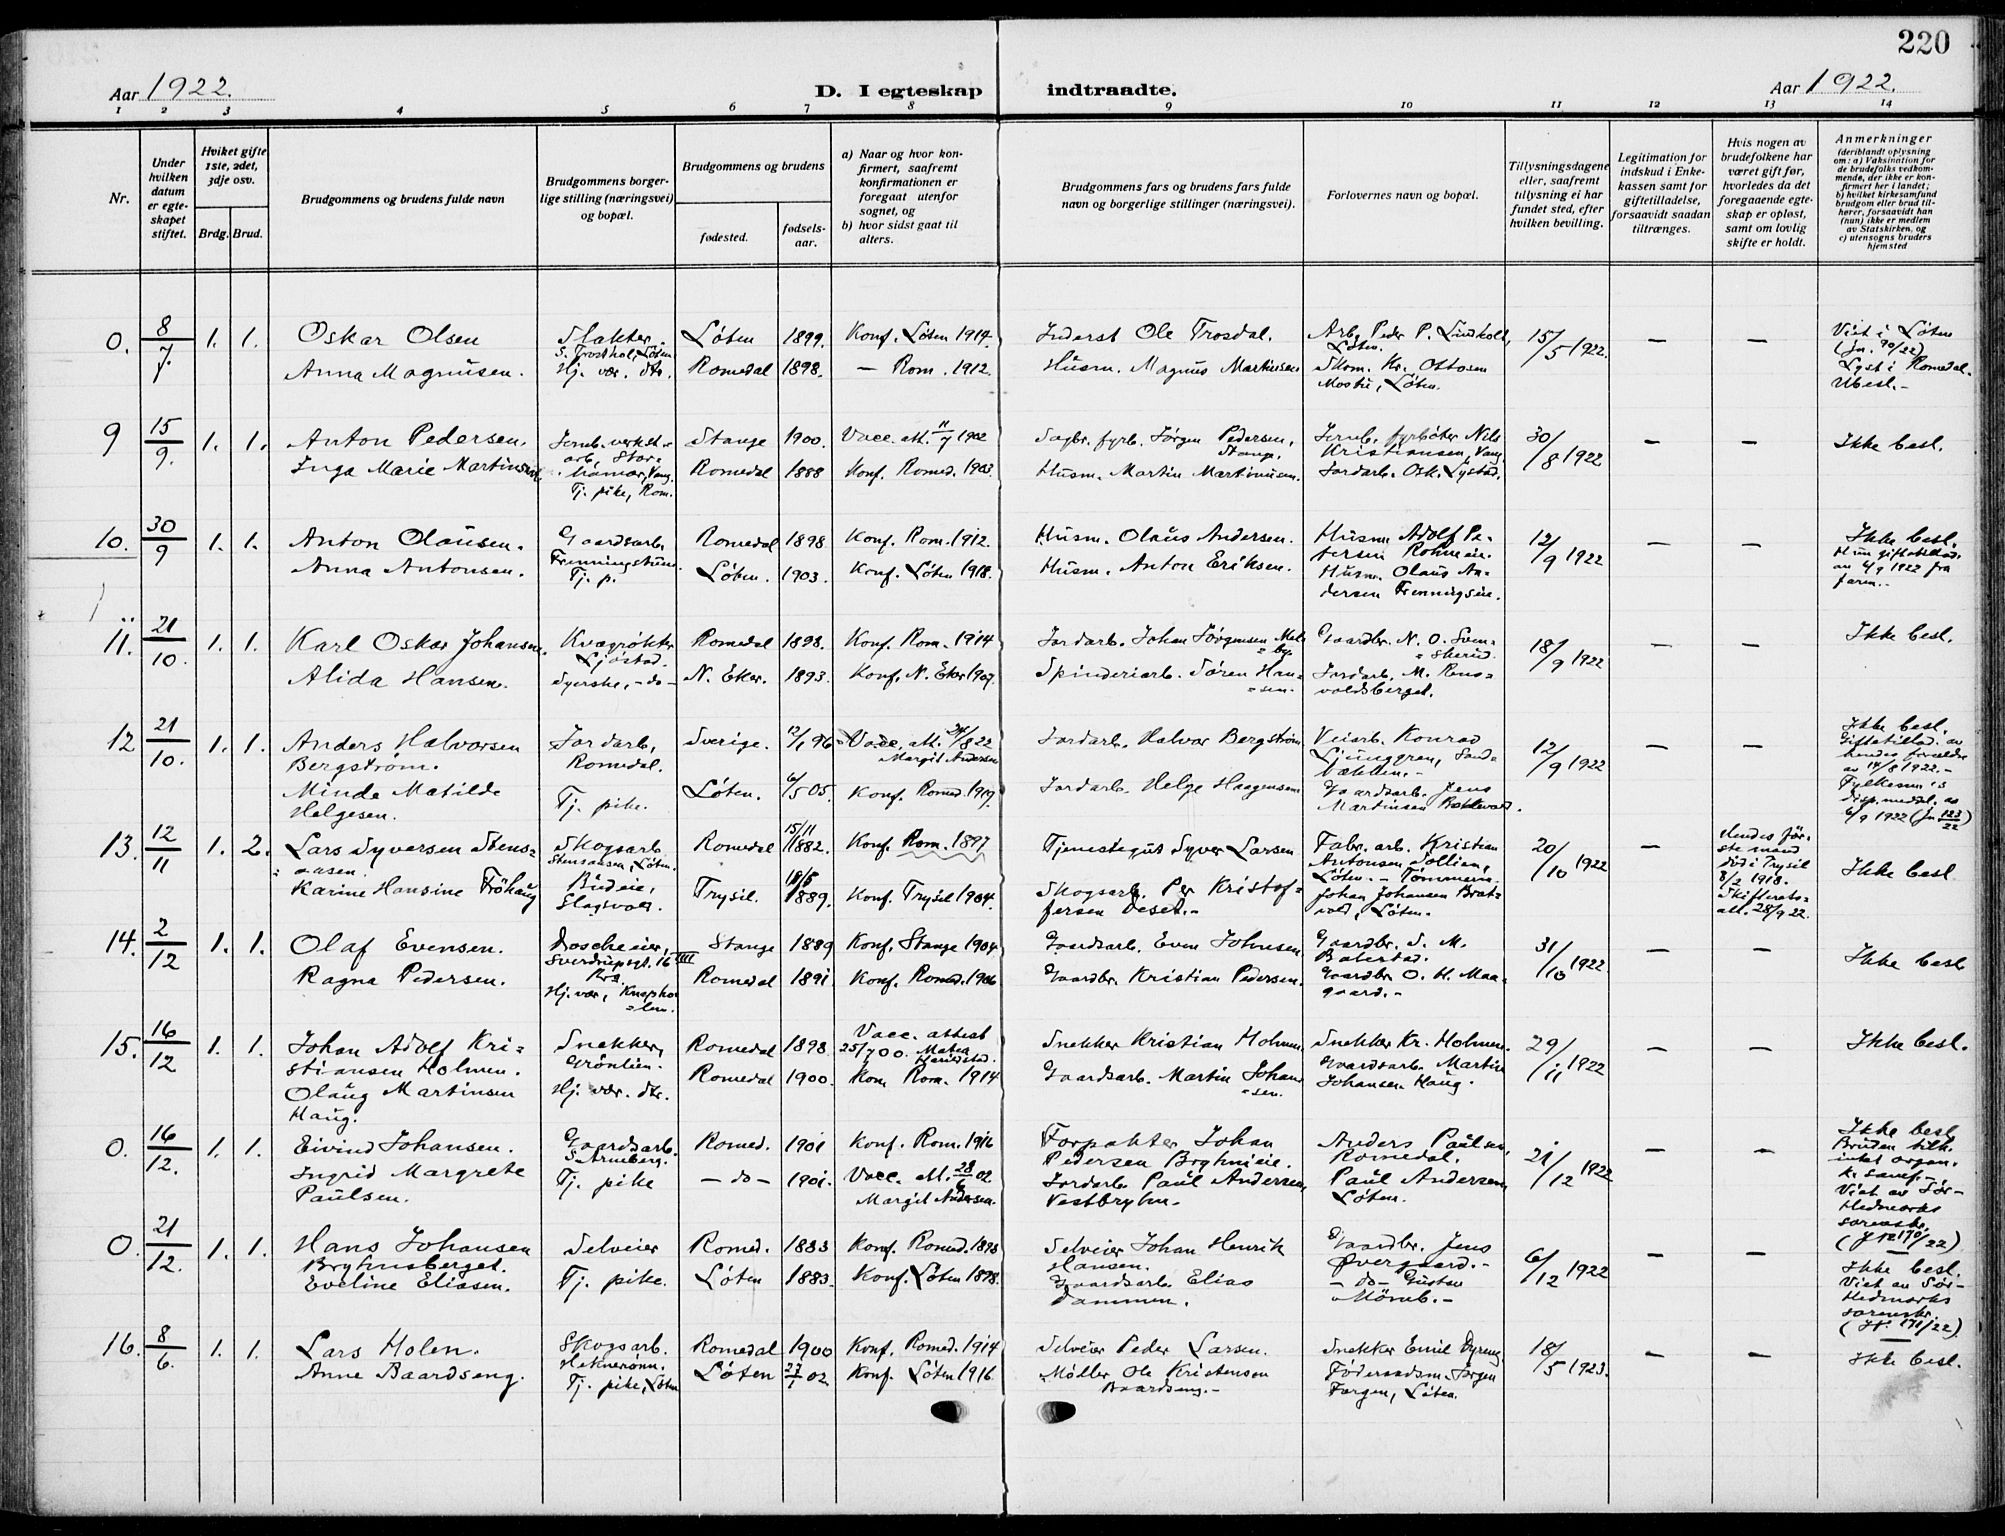 220
Aar 1922.
D. I egteskap indtraadte.
Aar 1922.
1 2 3 4 5 6 7 8 9 10 11 12 13 14
Nr.
Under hvilken datum er egteskapet stiftet.
Hviket gifte 1ste, 2det, 3dje osv.
Brdg. Brud.
Brudgommens og brudens fulde navn
Brudgommens borgerlige stilling (næringsvei) og bopæl.
Brudgommens og brudens
fødested.
fødselsaar.
a) Naar og hvor konfirmert, saafremt konfirmationen er foregaat utenfor sognet, og
b) hvor sidst gaat til alters.
Brudgommens fars og brudens fars fulde navn og borgerlige stillinger (næringsvei).
Forlovernes navn og bopæl.
Tillysningsdagene eller, saafremt tillysning ei har fundet sted, efter hvilken bevilling.
Legitimation for indskud i Enkekassen samt for giftetilladelse, forsaavidt saadan tiltrænges.
Hvis nogen av brudefolkene har været gift før, hvorledes da det foregaaende egteskap er opløst, samt om lovlig skifte er holdt.
Anmerkninger
(deriblandt oplysning om: a) Vaksination for de brudefolks vedkommende, der ikke er konfirmert her i landet;
b) hvilket kirkesamfund brudgom eller brud tilhører, forsaavidt han (hun) ikke er medlem av Statskirken, og
c) utensogns bruders hjemsted
0. 8/7 1. 1. Oskar Olsen Slakter, S. Trosthol, Løten Løten 1899. Konf. Løten 1914. Inderst Ole Trosdal. Arb. Peder P. Lindholt, Løten. 15/5 1922. — — Viet i Løten (Jn. 90/22) Lyst i Romedal. Ubesl.-
Anna Magnusen. Hj. vær. dtr. Romedal 1898. — Rom. 1912. Husm. Magnus Martinsen Skom. Kr. Ottosen Mostu, Løten.
9 15/9. 1. 1. Anton Pedersen. Jernb. verkst. arb. Storhamar, Vang. Stange 1900. Vacc. att. 11/7 1902 Sagbr. fyrb. Jørgen Pedersen, Stange. Jernb. fyrbøter Nils Kristiansen, Vang 30/8 1922 — — Ikke besl.
Inga Marie Martinsen. Tj. pike, Rom. Romedal 1888 Konf. Romed. 1903. Husm. Martin Martinusen. Jordarb. Osk. Lystad.
10. 30/9 1. 1. Anton Olausen. Gaardsarb. Frenningstuen. Romedal 1898 Konf. Rom. 1912. Husm. Olaus Andersen. Husm. Adolf Petersen 12/9 1922 — — Ikke besl.
Anna Antonsen. Tj. p. Løten. 1903. Konf. Løten 1918. Husm. Anton Eriksen. Husm. Olaus Andersen Frenningseie.
11. 21/10. 1. 1. Karl Oskar Johansen. Kvægrøkter Ljøstad. Romedal 1898. Konf. Rom. 1914 Jordarb. Johan Jørgensen Gaardbr. N. O. Svenskerud. 18/9 1922 — — Ikke besl.
Alida Hansen. Syerske, -do- N. Eker. 1893. Konf. N. Eker 1907. Spinderiarb. Søren Hansen. Jordarb. M. Rensvoldsberget.
12 21/10. 1. 1. Anders Halvorsen Bergstrøm. Jordarb, Romedal. Sverige. 12/1 96 Vacc. att. 24/8 22 Margit Andersen Jordarb. Halvor Bergstrøm Veiarb. Konrad Ljunggren, 12/9 1922 — — Ikke besl. Giftetillad. av hendes forældre av 14/8 1922.-
Minda Matilde Helgesen. Tj. pike. Løten. 6/5 05. Konf. Romed. 1919. Jordarb. Helge Haagensen Gaardsarb. Jens Martinsen Fylkesm's disp. meddel. av 6/9 1922 (Jn 123/22)
13. 12/11 1. 2. Lars Syversen Stensaasen. Skogsarb Stensaasen, Løten. Romedal 15/11 1882. Konf. Rom. 1897 Tjenestegut Syver Larsen Fabr. arb. Kristian Antonsen Sollien, Løten. 20/10 1922 — Hendes første mand død i Trysil 8/2 1918. Skifterets-att. 28/9 22. Ikke besl.
Karine Hansine Frøhaug Budeie, Slagsvold. Trysil. 18/5 1889. Konf. Trysil 1904. Skogsarb. Per Kristoffersen Deset.- Tømmerm. Johan Johansen Bratvold, Løten.
14. 2/12 1. 1. Olaf Evensen. Droscheeier, Sverdrupsgt. 16 III Kra. Stange 1889 Konf. Stange 1904. Gaardsarb. Even Johnsen Gaardbr. S. M. Bakerstad. 31/10 1922. — — Ikke besl.
Ragna Pedersen. Hj. vær, Knapholen. Romedal 1891 Konf. Romed. 1906 Gaardbr Kristian Pedersen. Gaardbr O. H. Maagaard.-
15. 16/12 1. 1. Johan Adolf Kristiansen Holmen. Snekker, Grønlien. Romedal 1898. Vacc. attest 25/7 00. Snekker Kristian Holmen Snekker Kr. Holmen. 29/11 1922 — — Ikke besl.
Olaug Martinsen Haug. Hj. vær. dtr. Romedal 1900. Kon Rom. 1914 Gaardsarb. Martin Johansen. Gaardsarb. Martin Johansen Haug.
0. 16/12. 1. 1. Eivind Johansen. Gaardsarb. S. Arneberg. Romed. 1901 Konf. Rom. 1916 Forpakter Johan Pedersen Bryhnieie. Anders Paulsen, Romedal. 21/12 1922 — — Ikke besl Bruden tilh. intet organ. k. samf.- Viet av Sør-Hedmarks sorenskr. (Jn 170/22)
Ingrid Margrete Paulsen. Tj. pike — do — 1901. Vacc. Att. 28/6 02. Margit Andersen. Jordarb Paul Andersen Vestbryhn. Paul Andersen, Løten.
0. 21/12. 1. 1. Hans Johansen Bryhnsberget. Selveier Romed. 1883 Konf. Romed. 1898 Selveier Johan Henrik Hansen. Gaardbr. Jens Øvergaard.- 6/12 1922 — — Ikke besl. Viet av Sør-Hedmarks sorenskr. (Jn 171/22)
Eveline Eliasen. Tj. pike. Løten 1883. Konf. Løten 1898. Gaardsarb. Elias Dammen. — do — Gustav
16. 8/6. 1. 1. Lars Holen. Skogsarb. Romedal 1900 Konf. Romed. 1914 Selveier Peder Larsen. Snekker Emil Dyreng 18/5 1923. — — Ikke besl.
Anne Baardseng. Tj. pike, Løten Løten 27/1 02 Konf. Løten 1916. Møller Ole Kristensen Baardseng.- Føderaadsm. Jørgen Torgen, Løten.